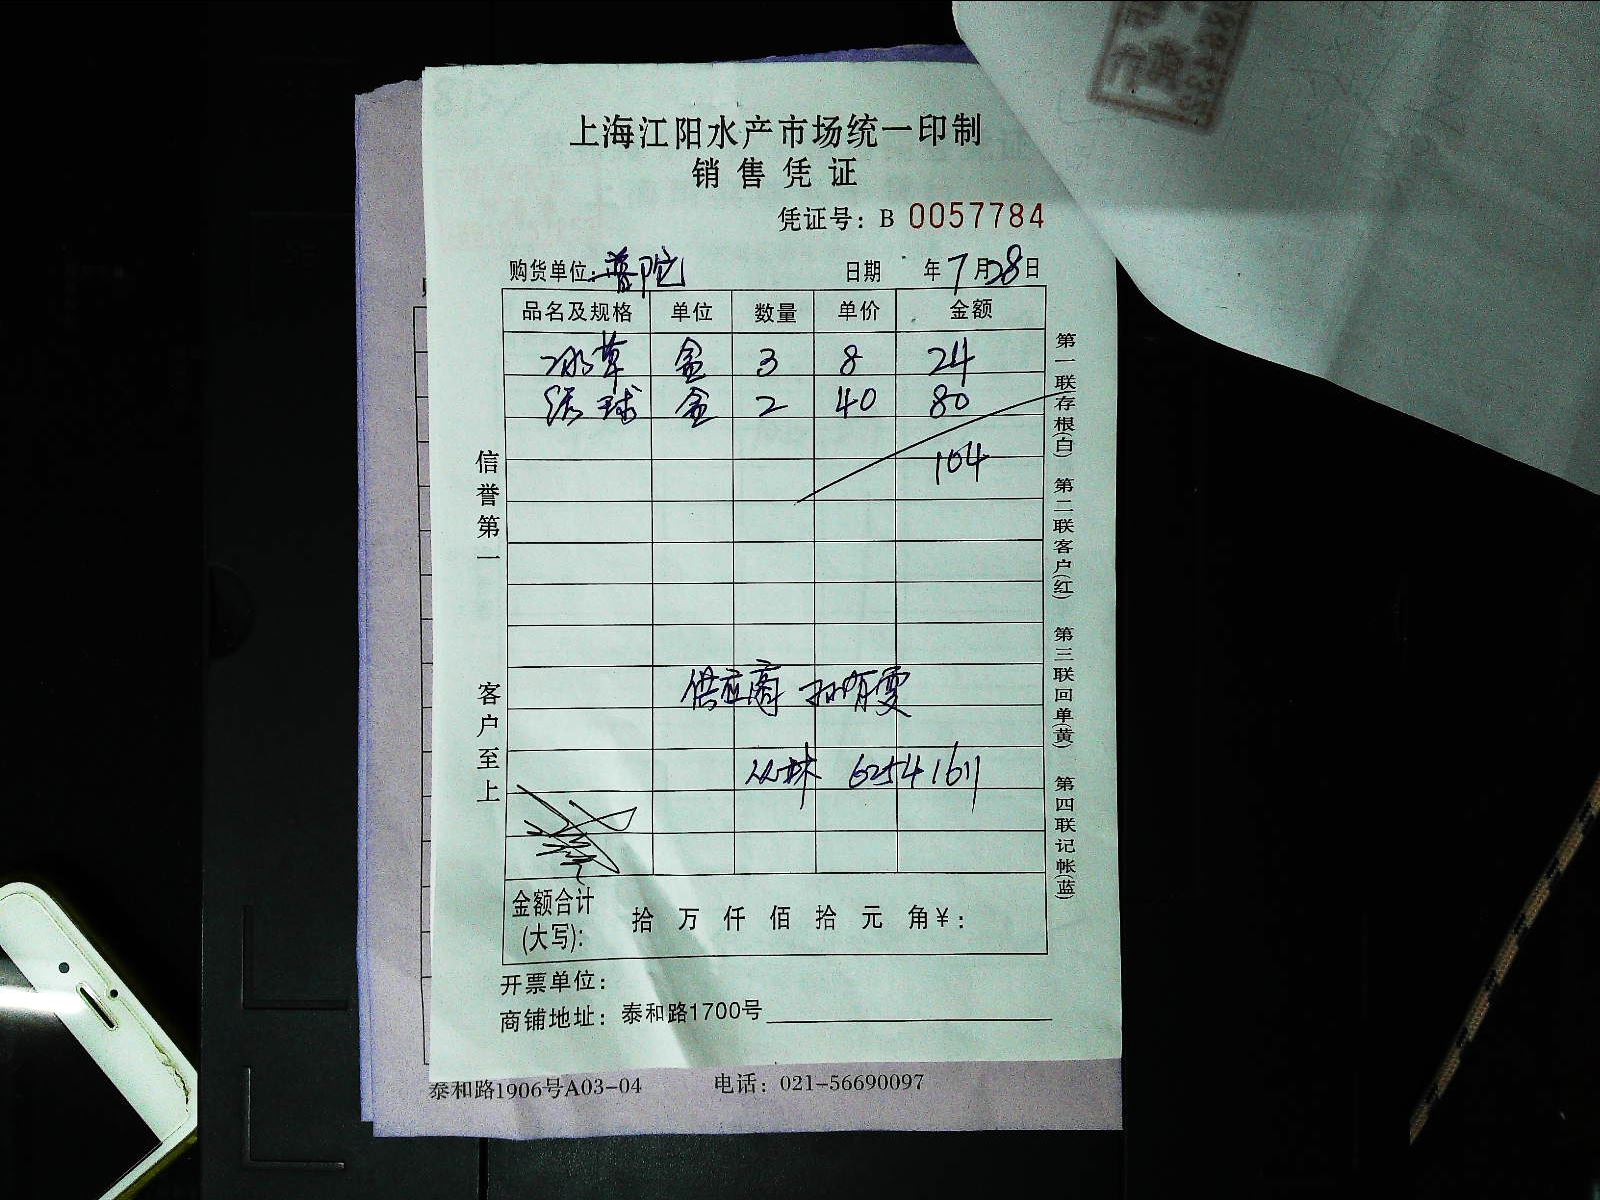 上海江阳水产市场统一印制
销售凭证
凭证号：B 0057784
购货单位：普陀 日期 年7月28日
品名及规格 单位 数量 单价 金额
冰草 盒 3 8 24
球 盒 2 40 80
104
供应商
丛林 62541611
金额合计(大写)： 拾 万 仟 佰 拾 元 角￥：
开票单位：
商铺地址：泰和路1700号
信誉第一 客户至上
第一联存根(白) 第二联客户(红) 第三联回单(黄) 第四联记帐(蓝)
泰和路1906号A03-04 电话：021-56690097